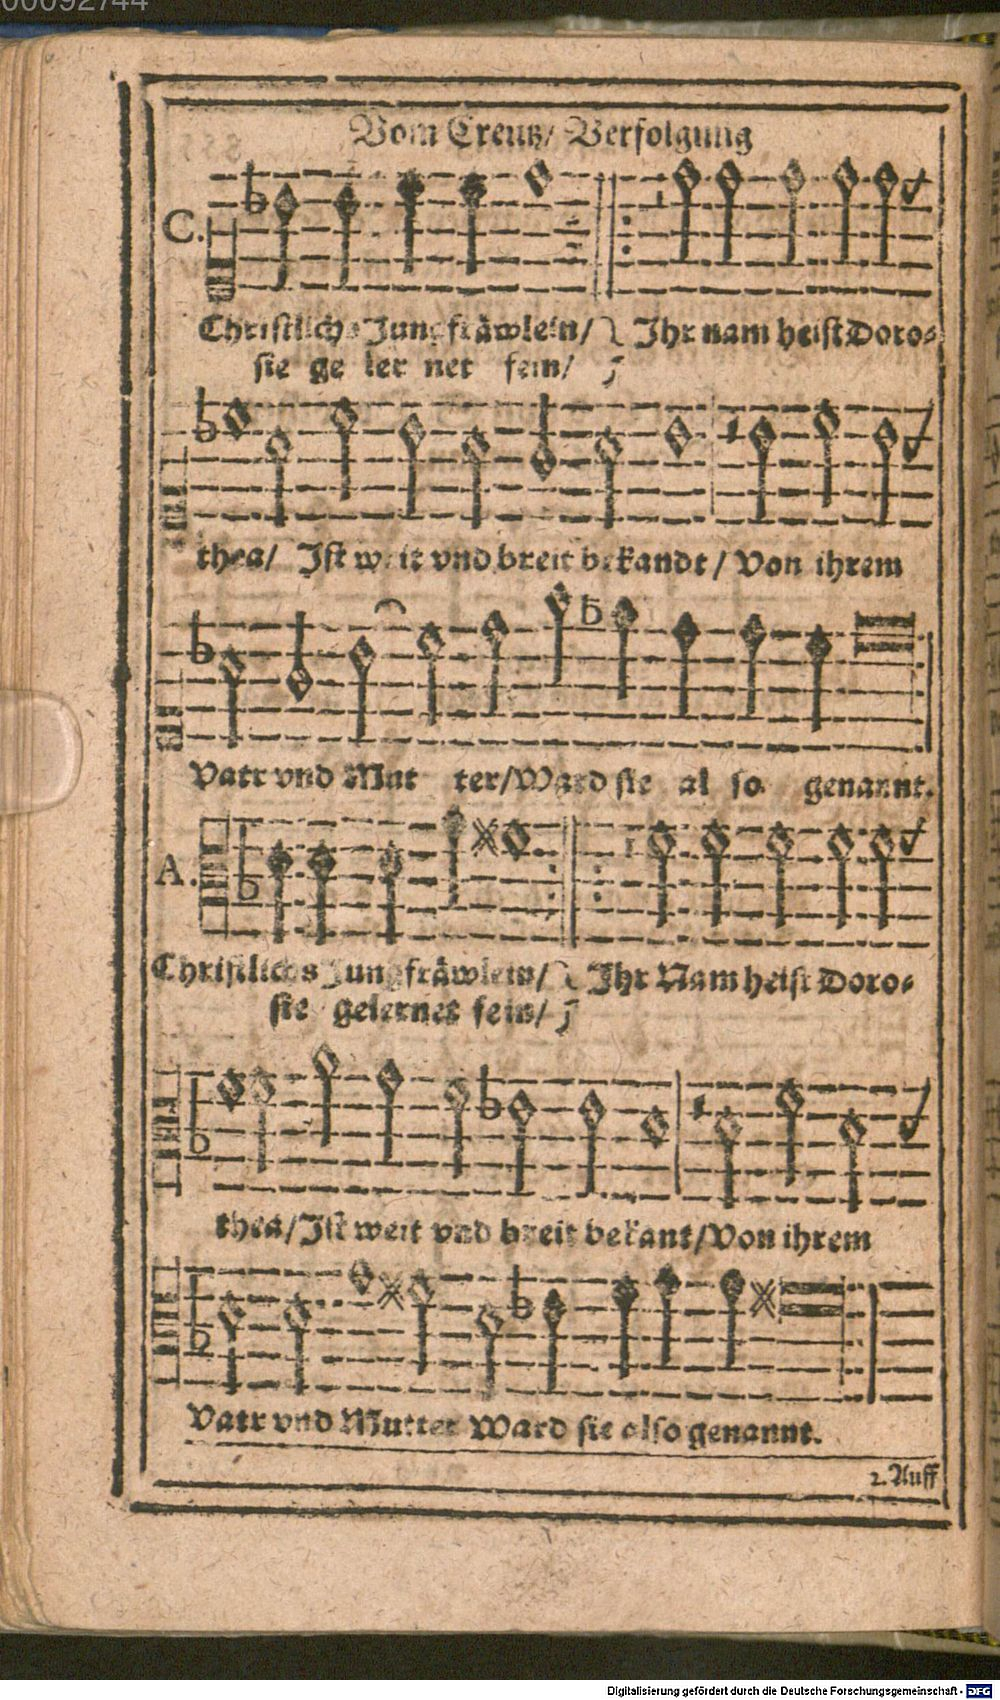 00092744
Vom Creutz/ Verfolgung
C.
Christlichs Jungfräwlein/ Ihr nam heist Doro-
sie ge ler net fein/
thea/ Ist weit vnd breit bekandt/ Von ihrem
Vatr vnd Mut ter/ Ward sie al so genannt.
A.
Christlichs Jungfräwlein/ Ihr Nam heist Doro-
sie gelernet fein/
thea/ Ist weit vnd breit bekant/ Von ihrem
Vatr vnd Mutter Ward sie also genannt.
2. Auff
Digitalisierung gefördert durch die Deutsche Forschungsgemeinschaft - DFG